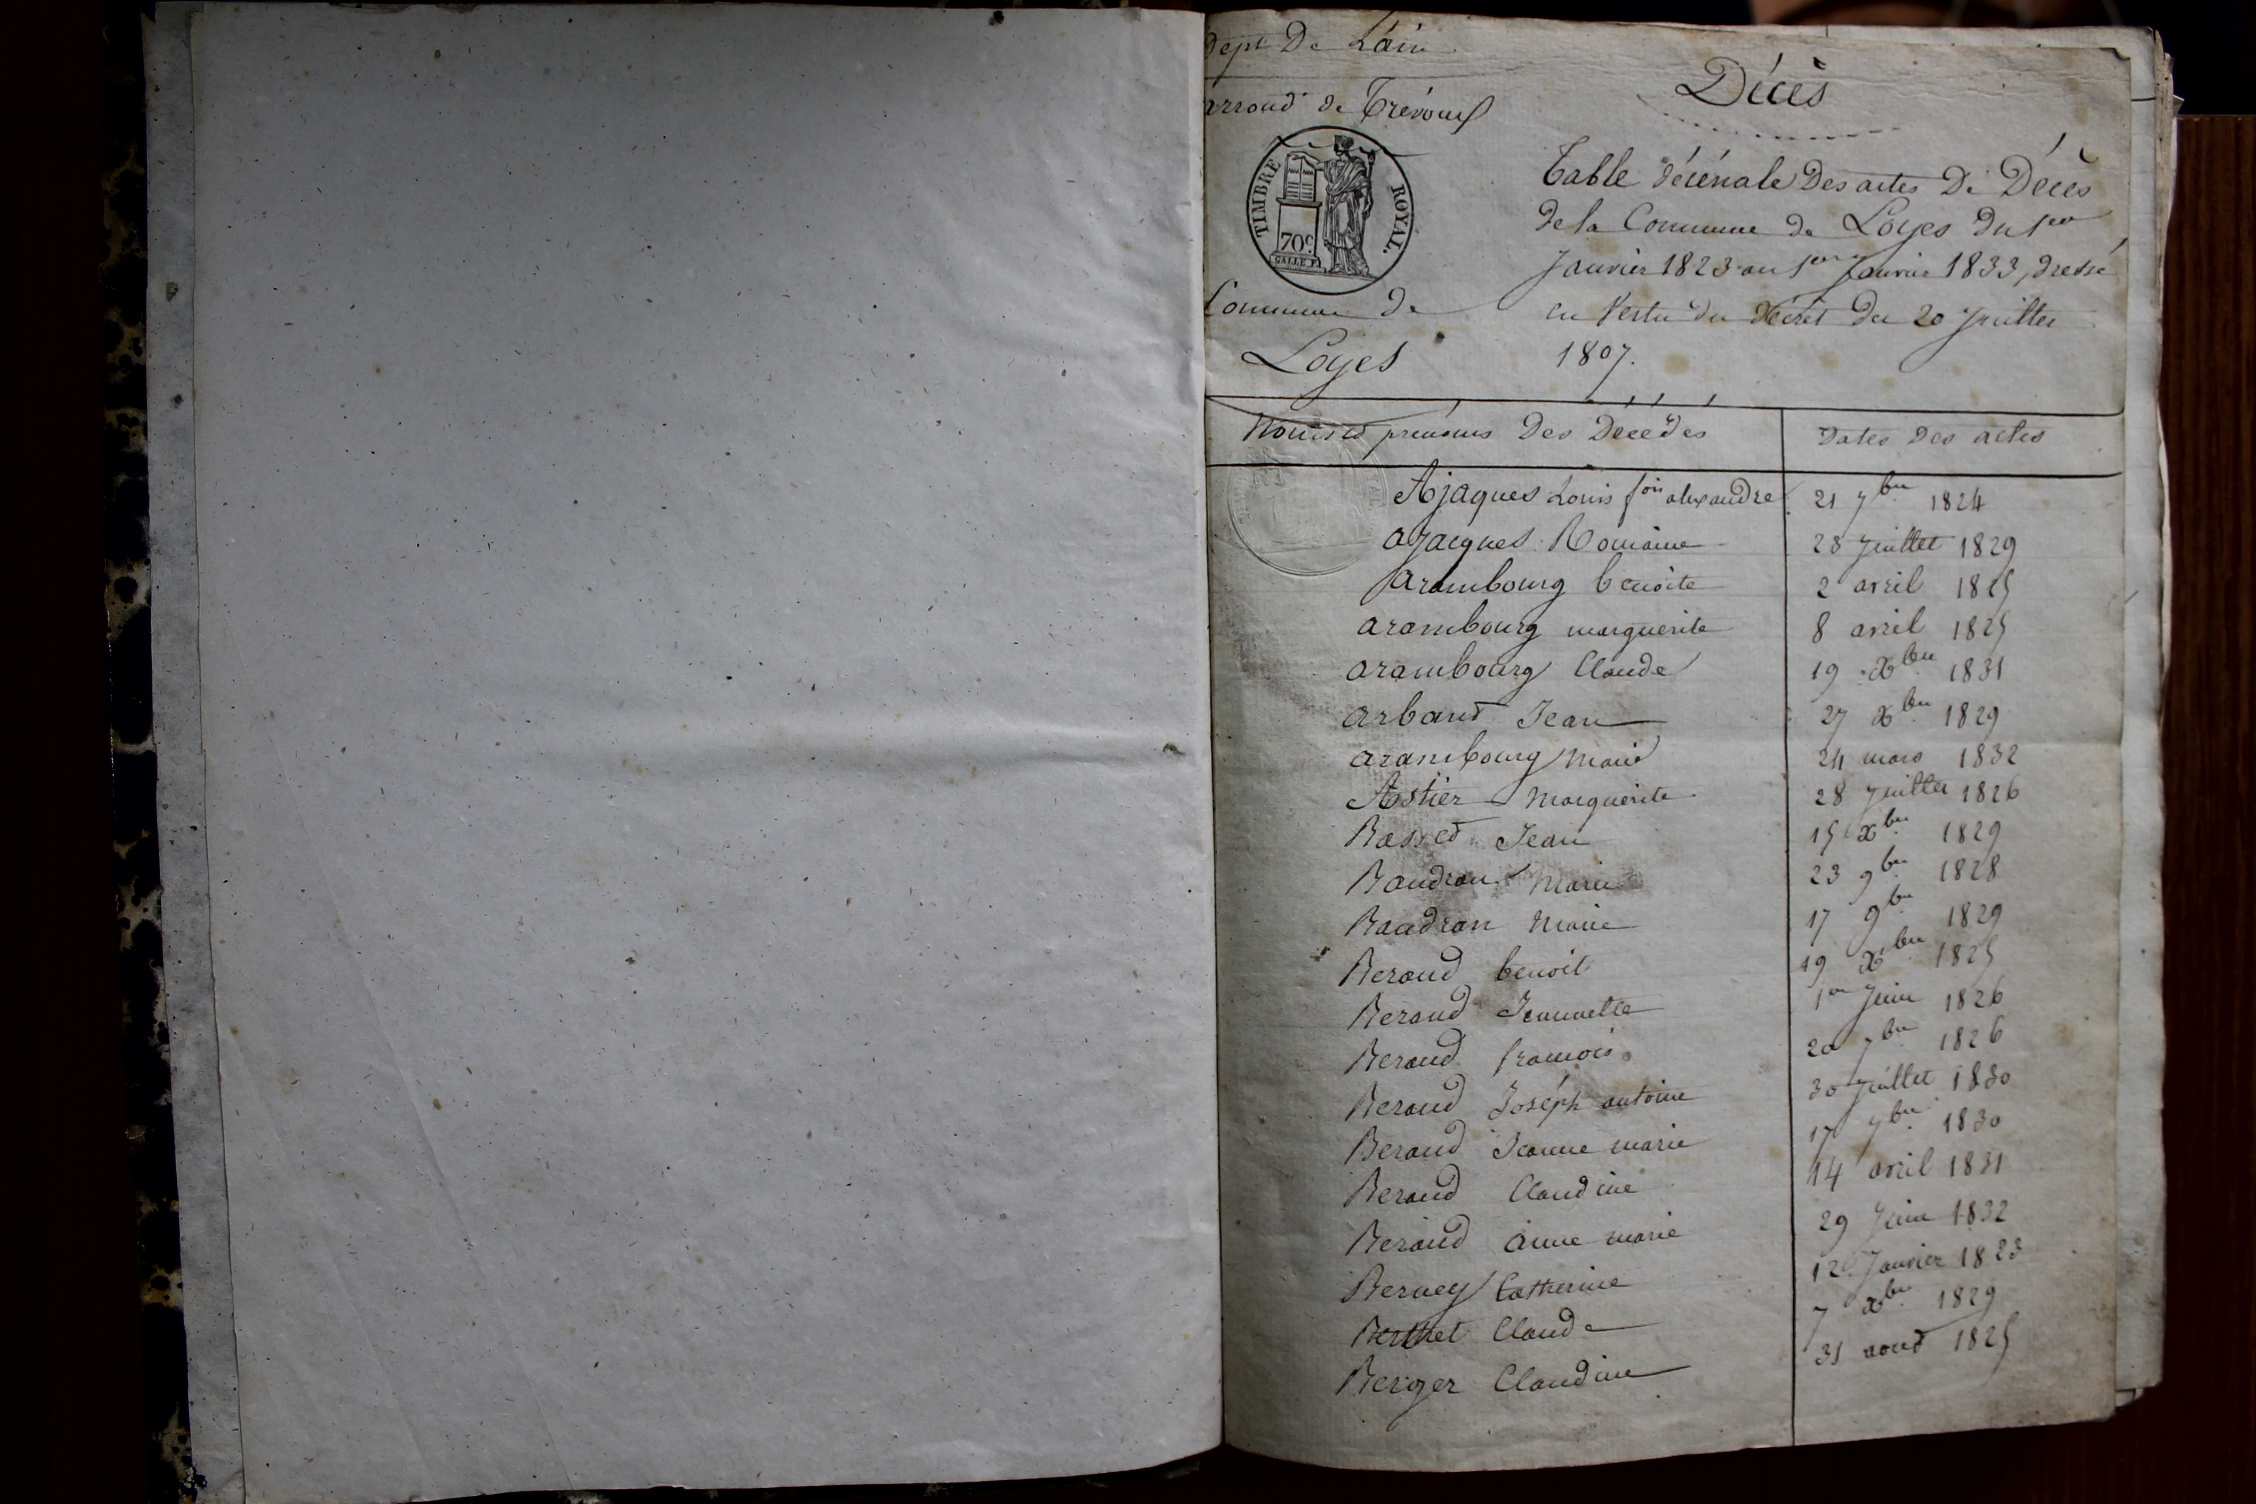 dept De Lain
arrond de Trévoux
TIMBRE ROYAL.
70c
GALLE F.
Commune de
Loyes
Décès
Table décénale Des actes De Décès
de la Commune de Loyes Du 1er
Janvier 1823 au 1er Janvier 1833, dressé
en Vertu du Décret du 20 Juillet
1807.
Noms et prénoms Des Décédés
Dates Des actes
Ajaques Louis fois alexandre 21 7bre 1824
ajacques Romaine 28 Juillet 1829
arambourg benoite 2 avril 1825
arambourg marguerite 8 avril 1825
arambourg Claude 19 Xbre 1831
arband Jean 27 Xbre 1829
arambourg Marie 24 mars 1832
Astier Marguerite 28 Juillet 1826
Basset Jean 15 Xbre 1829
Baudran Marie 23 9bre 1828
Baudran Marie 17 9bre 1829
Beraud benoit 19 Xbre 1825
Beraud Jeannette 1er Juin 1826
Beraud francois 20 7bre 1826
Beraud Joséph antoine 30 Juillet 1830
Beraud Jeanne marie 17 7bre 1830
Beraud Claudine 14 avril 1831
Beraud anne marie 29 Juin 1832
Berney Catherine 12 Janvier 1823
Berthet Claude 7 Xbre 1829
Berger Claudine 31 aout 1825